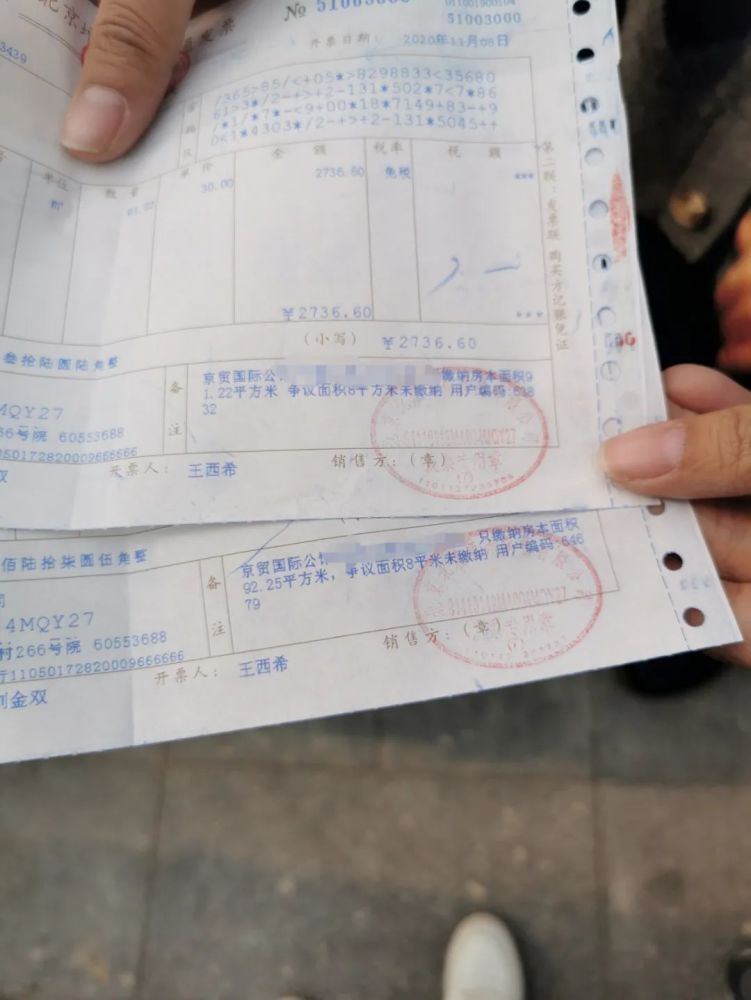 北京
发票
№ 51003000
011001900104
51003000
3439
开票日期: 2020年11月08日
密码区
/365>85/<+05*>8298833<35680
61>3*/2-+>+2-131*502*7<7*86
/*1/*7*-<9+00*18*7149+83-+9
0<1*4303*/2-+>+2-131*5045++
单位 数量 单价 金额 税率 税额
30.00 2736.60 免税 ***
¥2736.60 ***
(小写) ¥2736.60
第二联:发票联 购买方记账凭证
叁拾陆圆陆角整
MQY27
66号院 60553688
05017282000966666
备注
京贸国际公
缴纳房本面积9
1.22平方米 争议面积8平方米未缴纳 用户编码:618
32
开票人: 王西希
销售方:(章)
佰陆拾柒圆伍角整
4MQY27
村266号院 60553688
行11050172820009666666
刘金双
备注
京贸国际公
只缴纳房本面积
92.25平方米,争议面积8平米未缴纳 用户编码:646
79
开票人: 王西希
销售方:(章)